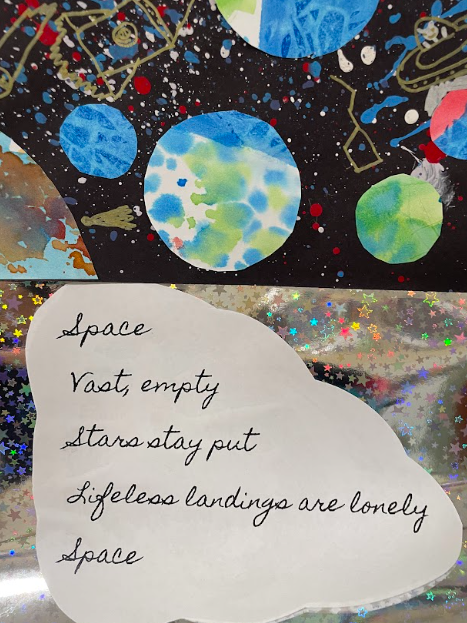 Space
Vast, empty
Stars stay put
Lifeless landings are lonely
Space